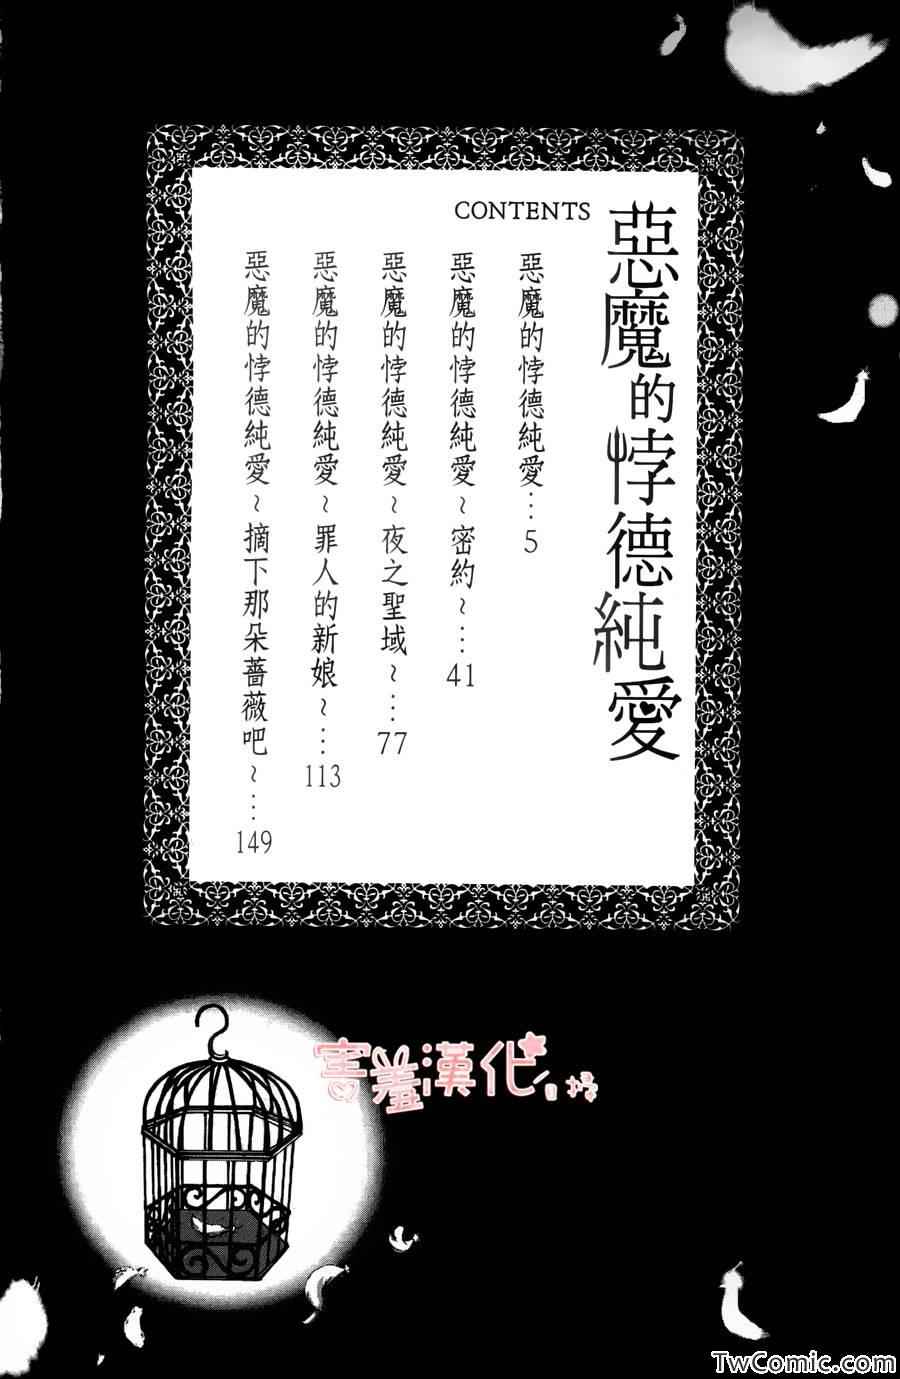 惡魔的悖德純愛
CONTENTS
惡魔的悖德純愛…5
惡魔的悖德純愛~密約~…41
惡魔的悖德純愛~夜之聖域~…77
惡魔的悖德純愛~罪人的新娘~…113
惡魔的悖德純愛~摘下那朵薔薇吧~…149
害羞漢化
天上漫畫
TwComic.com